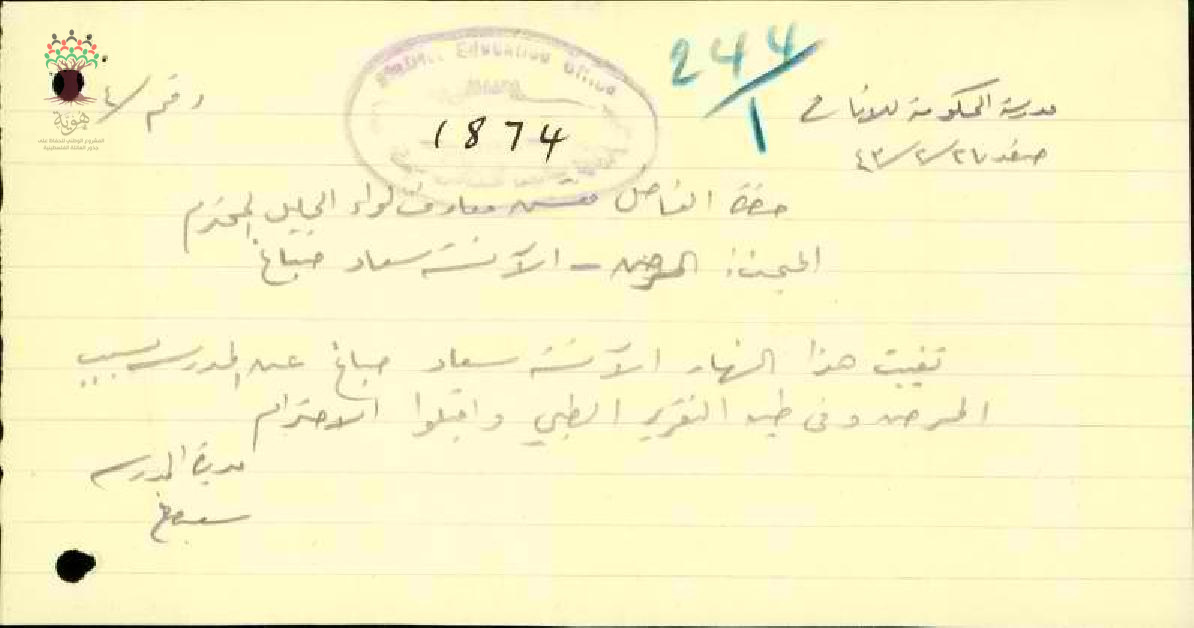 مدرسة الحكومة للاناث
صفد ٢٦/٢/٤٣
رقم /٤
244/1
District Education Office
1874
حضرة الفاضل مفتش معارف لواء الجليل المحترم
المبحث: المرض - الآنسة سعاد صباغ
تغيبت هذا النهار الآنسة سعاد صباغ عن المدرسة بسبب
المرض وفي طيه التقرير الطبي واقبلوا الاحترام
مديرة المدرسة
هوية
المشروع الوطني للحفاظ على
جذور العائلة الفلسطينية